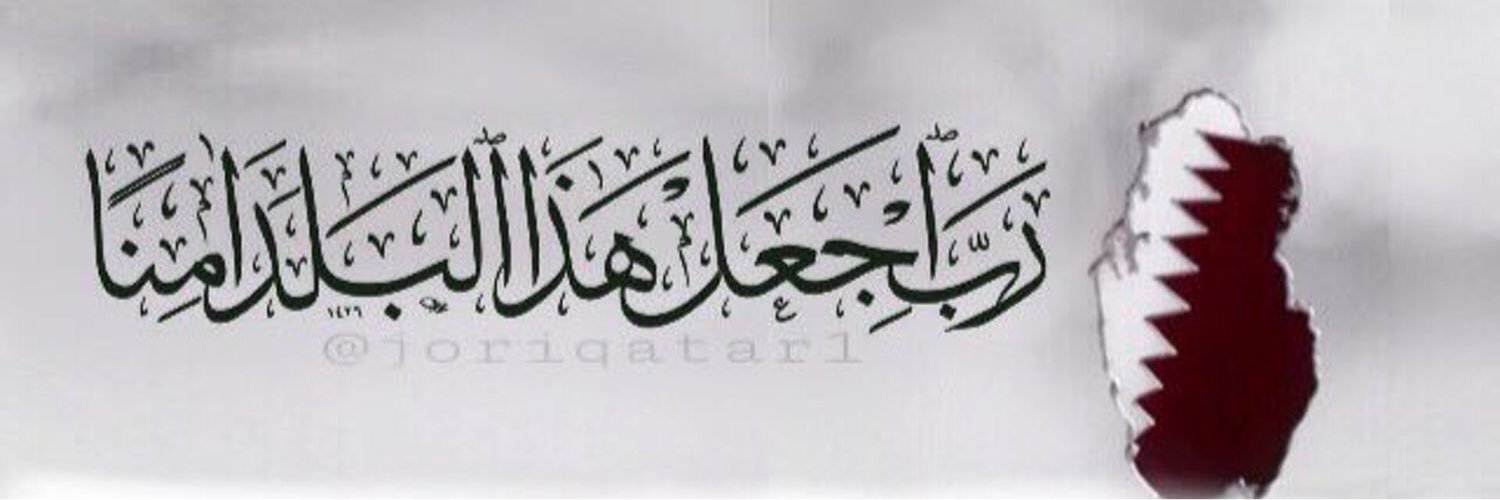 رَبِّ اجْعَلْ هَٰذَا الْبَلَدَ آمِنًا
١٤٢٦
@joriqatar1